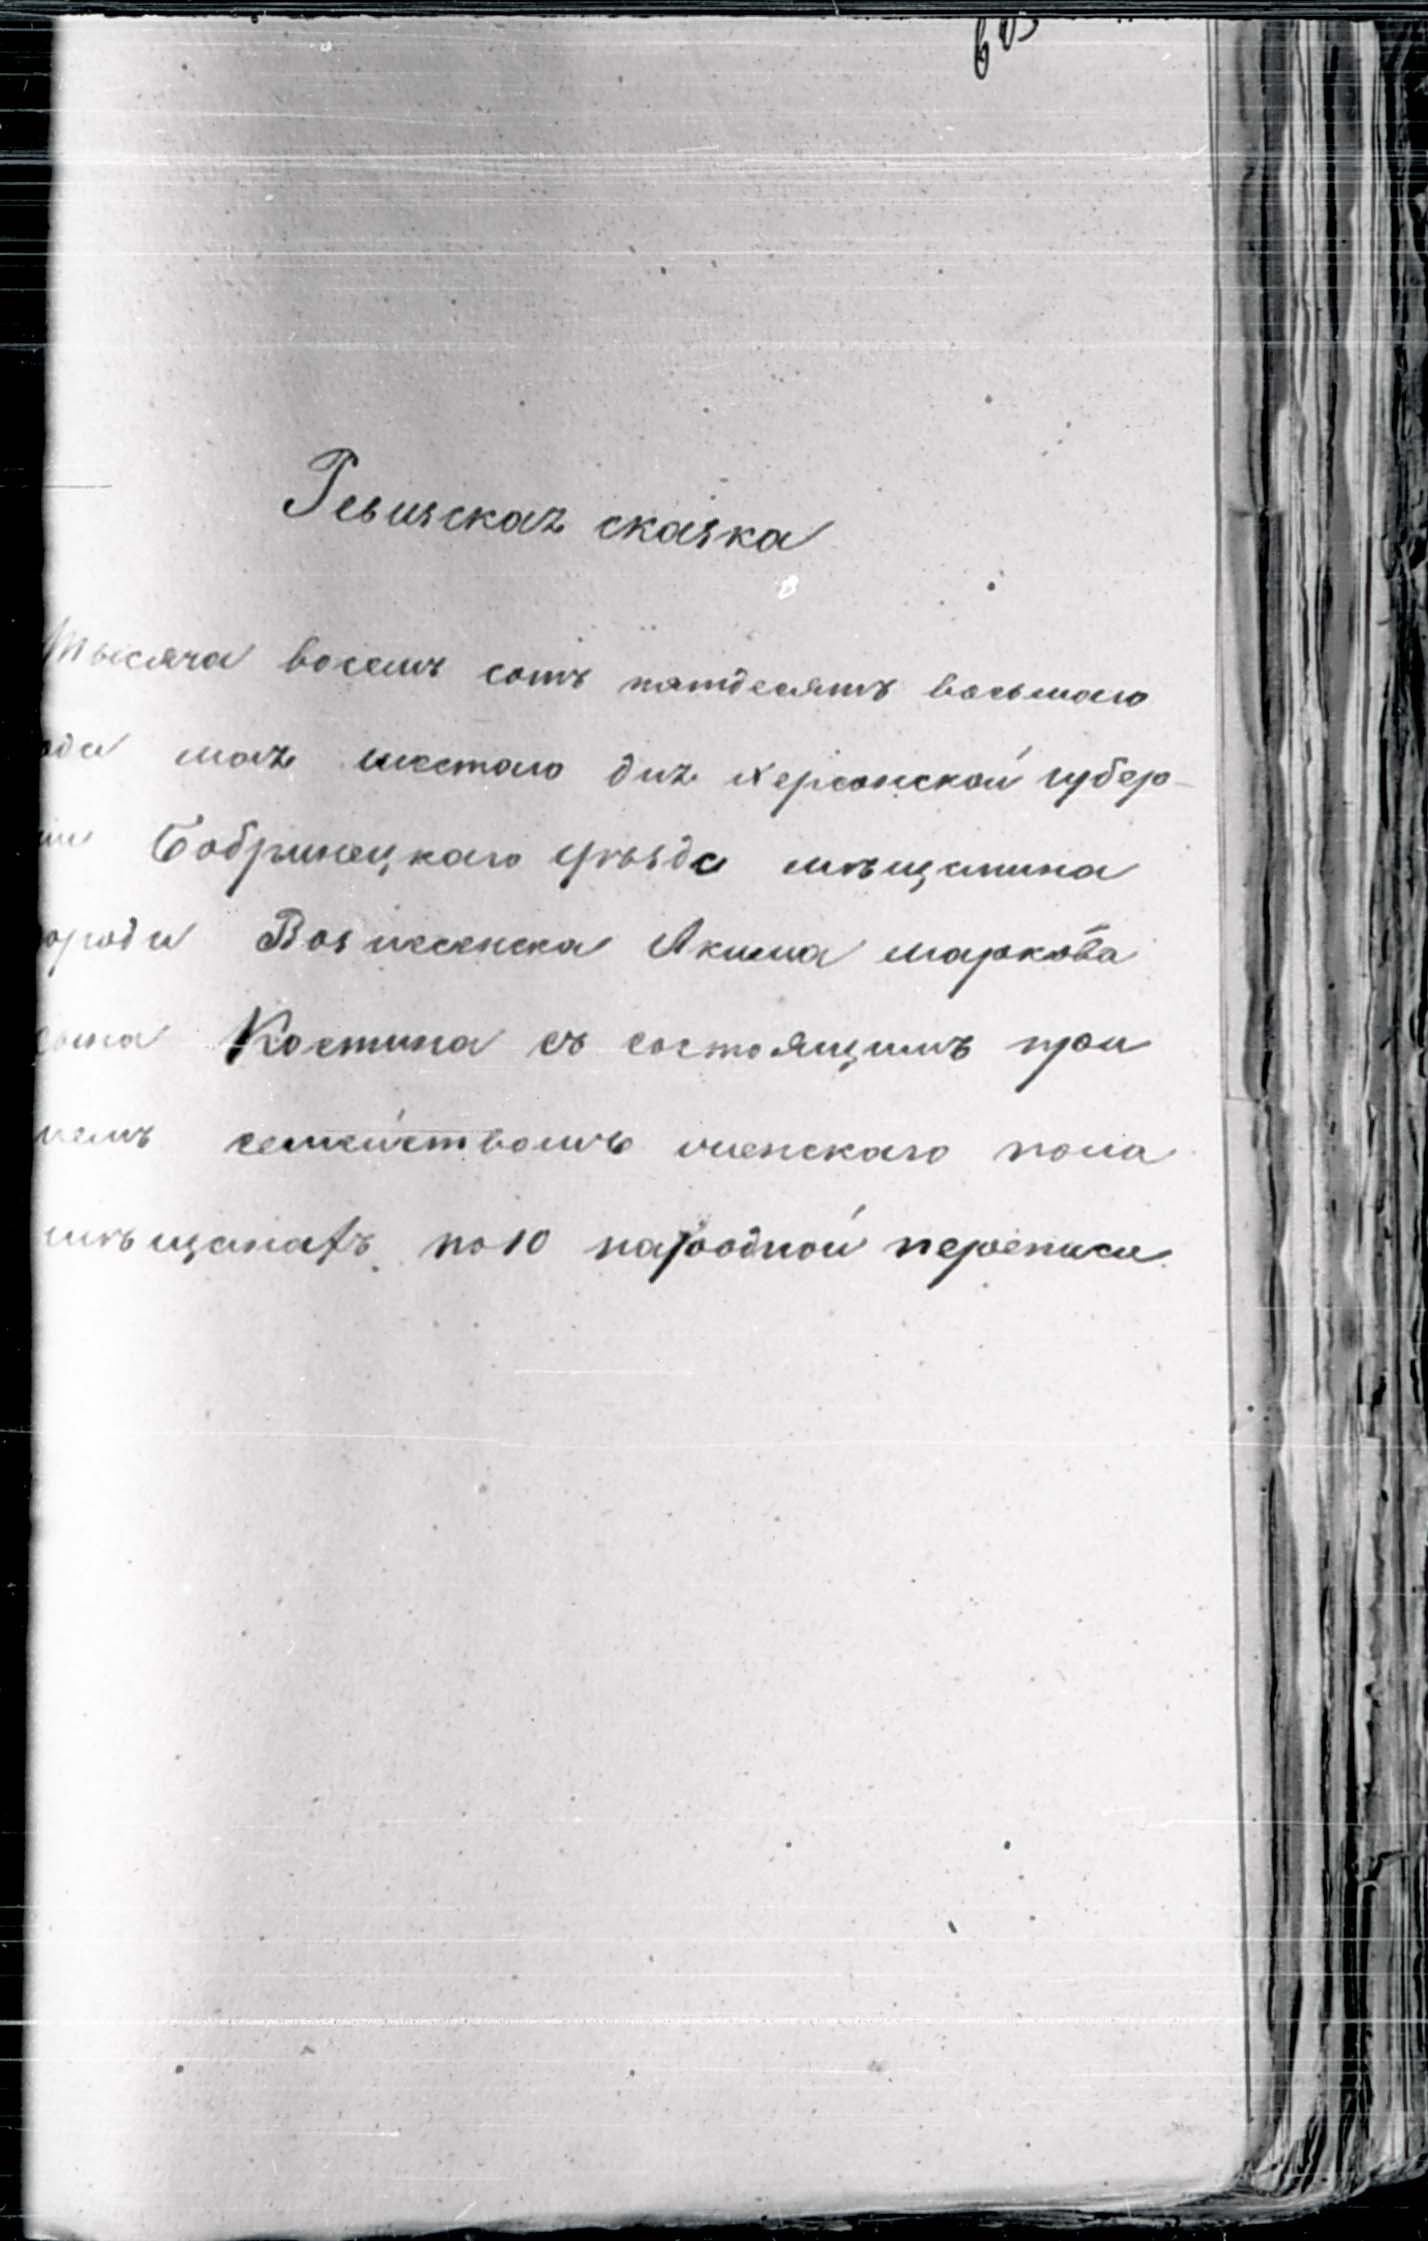 Ревизская сказка
Тысяча восемъ сотъ пятдесятъ восьмаго
ода мая шестаго дня херсонской губер-
ии Бобринецкаго уѣзда мѣщанина
орода Вознесенска Якима маркова
сына Костина съ состоящимъ при
немъ семействомъ женскаго пола
мѣщанахъ по 10 народной переписи.